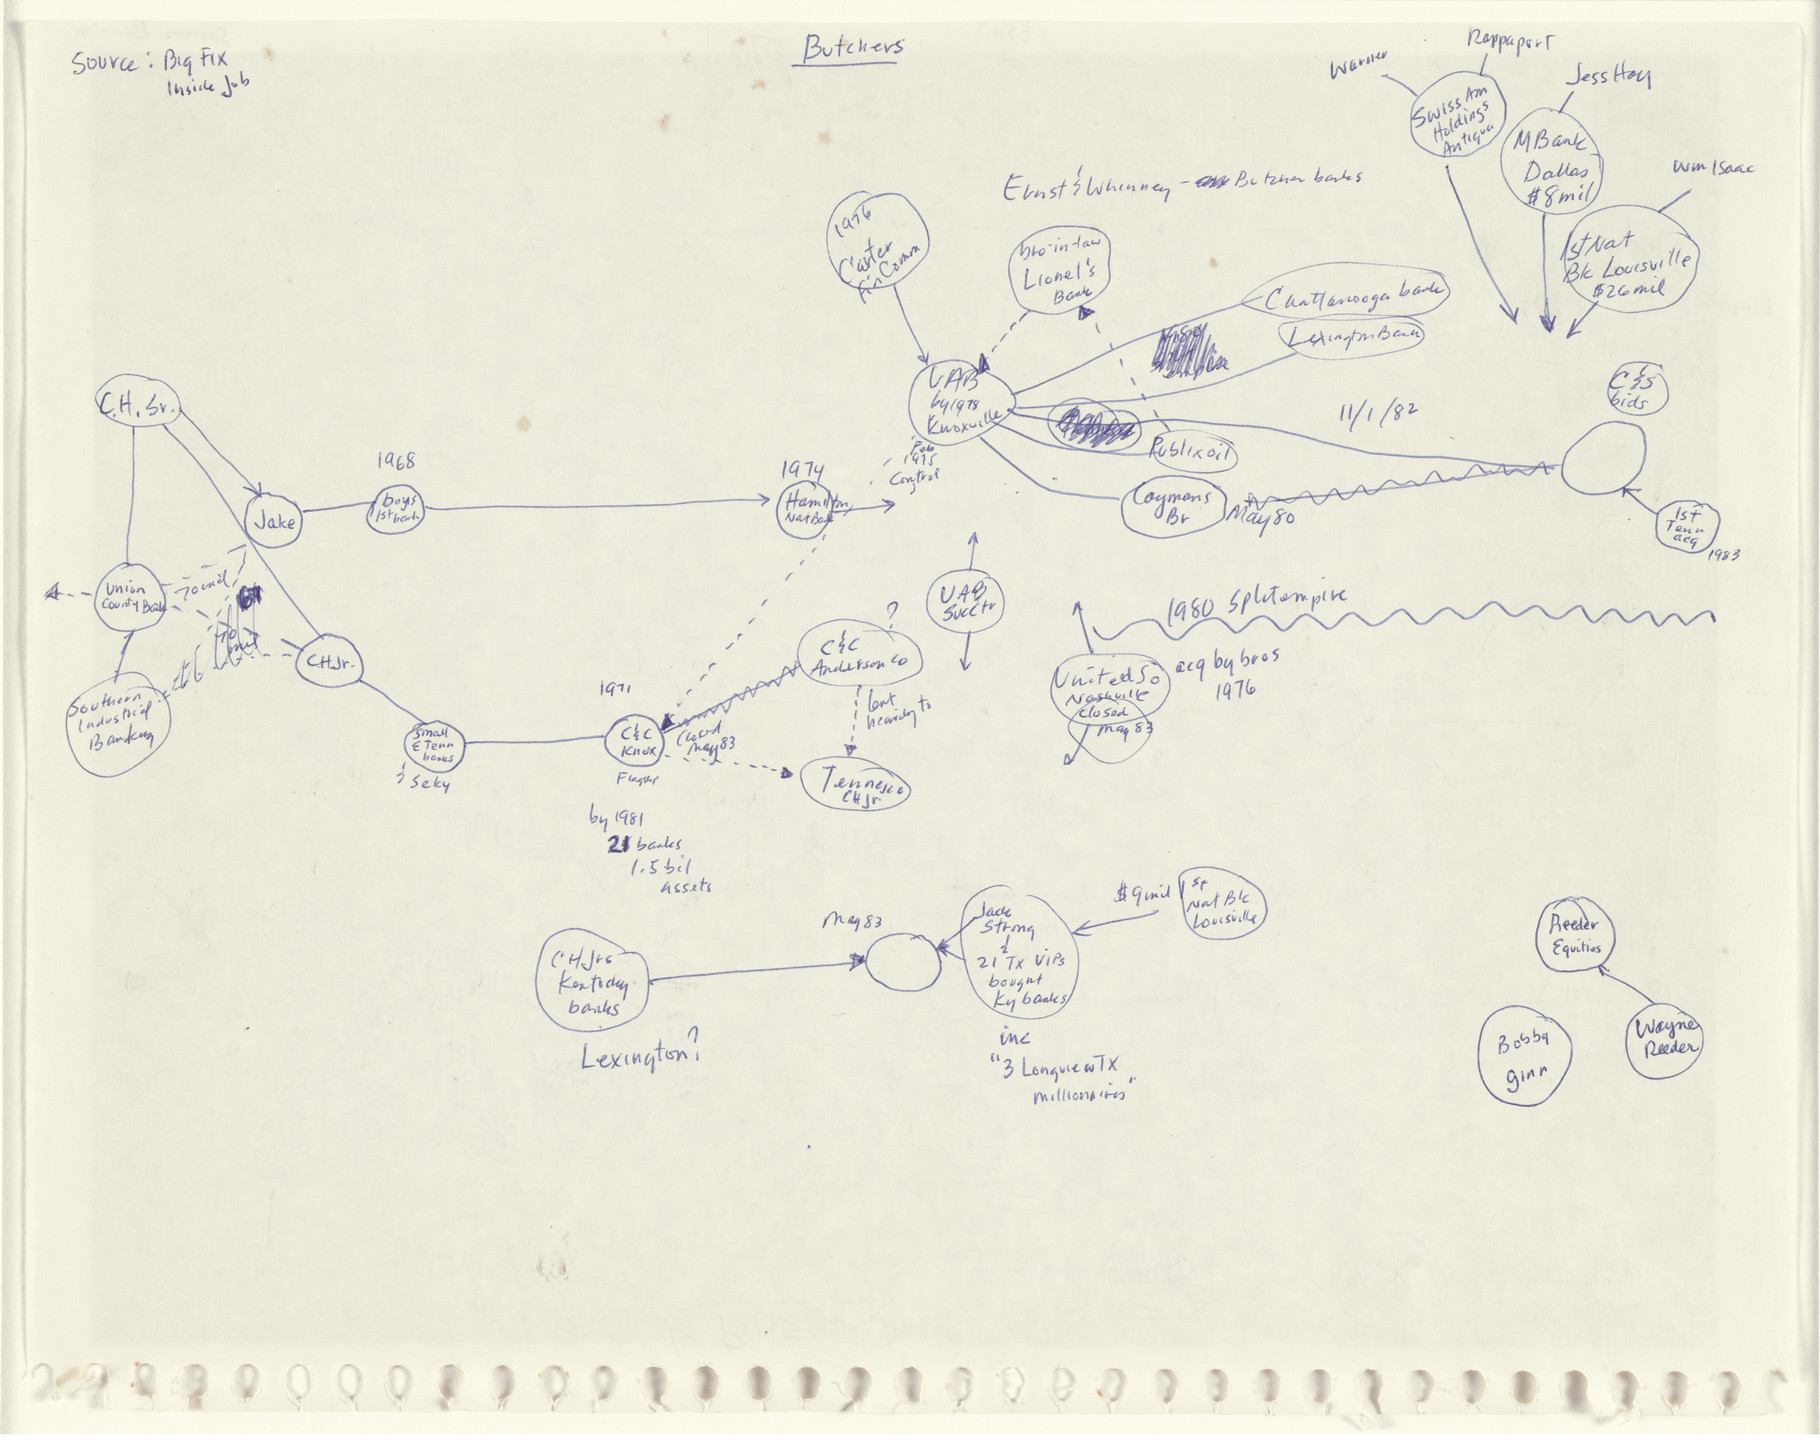 Butchers
Source: Big Fix
Inside Job
Warner
Rappaport
Swiss Am
Holdings
Antigua
Jess Hay
MBank
Dallas
$8mil
Wm Isaac
1st Nat
Bk Louisville
$26mil
Ernst & Whinney - Butcher banks
1976
Carter
Fin Comm
bro-in-law
Lionel's
Bank
Chattanooga bank
Lexington Bank
UAB
by 1978
Knoxville
Feb
1975
Control
Publix oil
11/1/82
C&S
bids
C.H. Sr.
1968
boys
1st bank
Jake
1974
Hamilton
Nat Bank
Caymans
Br
May 80
1st
Tenn
acq
1983
Union
County Bank
70 mil
70
mil
UAB
Succtr
1980 Split empire
C.H. Jr.
C&C
Anderson Co
?
United So
Nashville
closed
May 83
acq by bros
1976
Southern
Industrial
Banking
Small
E Tenn
banks
& Seky
1971
C&C
Knox
closed
May 83
lent
heavily to
Tennesco
CH Jr.
by 1981
21 banks
1.5 bil
assets
May 83
Jack
Strong
&
21 Tx VIPs
bought
Ky banks
$9mil
1st
Nat Bk
Louisville
CH Jrs
Kentucky
banks
Lexington?
inc
"3 Longview TX
millionaires"
Reeder
Equities
Bobby
Ginn
Wayne
Reeder